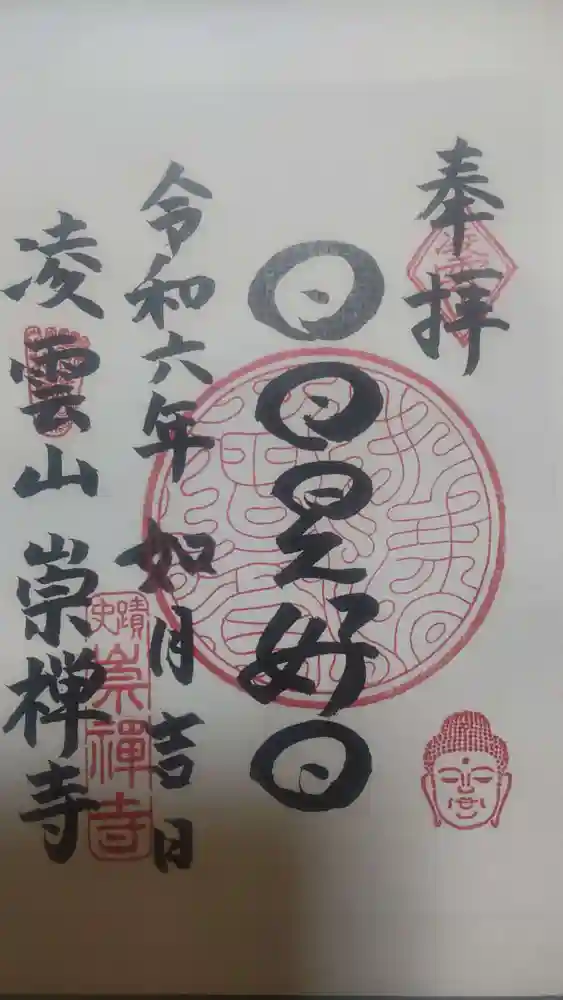 奉拝
日日是好日
令和六年如月吉日
凌雲山崇禅寺
史蹟
崇禪寺